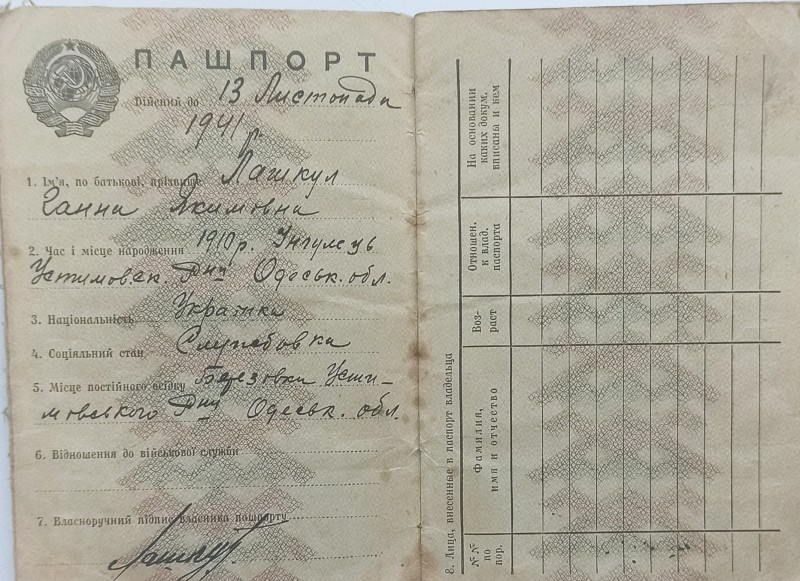 ПАШПОРТ
Дійсний до 13 Листопада
1941 р.
1. Ім'я, по батькові, прізвище Лашкул
Ганна Якимовна
2. Час і місце народження 1910 р. Інгулець
Устимовск. Одеськ. обл.
3. Національність Українка
4. Соціяльний стан Службовка
5. Місце постійного осідку Березовка Усти-
мовського Одеськ. обл.
6. Відношення до військової служби
7. Власноручний підпис власника пашпорту
Лашкул
8. Лица, внесенные в паспорт владельца
№№
по
пор.
Фамилия,
имя и отчество
Воз-
раст
Отношен.
к влад.
паспорта
На основании
каких докум.
вписаны и кем